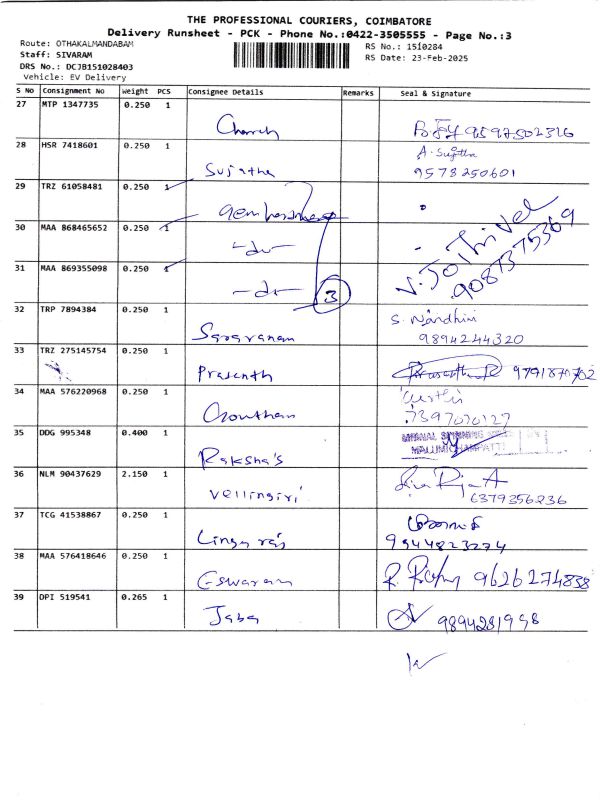 THE PROFESSIONAL COURIERS, COIMBATORE
Delivery Runsheet - PCK - Phone No.:0422-3505555 - Page No.:3
Route: OTHAKALMANDABAM
RS No.: 1510284
Staff: SIVARAM
RS Date: 23-Feb-2025
DRS No.: DCJB151028403
Vehicle: EV Delivery
S No Consignment No Weight PCS Consignee Details Remarks Seal & Signature
27 MTP 1347735 0.250 1
9597502326
28 HSR 7418601 0.250 1
Sujatha
A. Sujatha
9578250601
29 TRZ 61058481 0.250 1
30 MAA 868465652 0.250 1
-do-
31 MAA 869355098 0.250 1
-do- 3
9087375369
32 TRP 7894384 0.250 1
Saravanam
S. Nandhini
9894244320
33 TRZ 275145754 0.250 1
Prasanth
9791870702
34 MAA 576220968 0.250 1
Gowtham
7397020127
35 DDG 995348 0.400 1
Raksha's
36 NLM 90437629 2.150 1
Vellingiri
6379356236
37 TCG 41538867 0.250 1
Lingaraj
9944823274
38 MAA 576418646 0.250 1
Eswaram
9626274838
39 DPI 519541 0.265 1
Jaba
9894281998